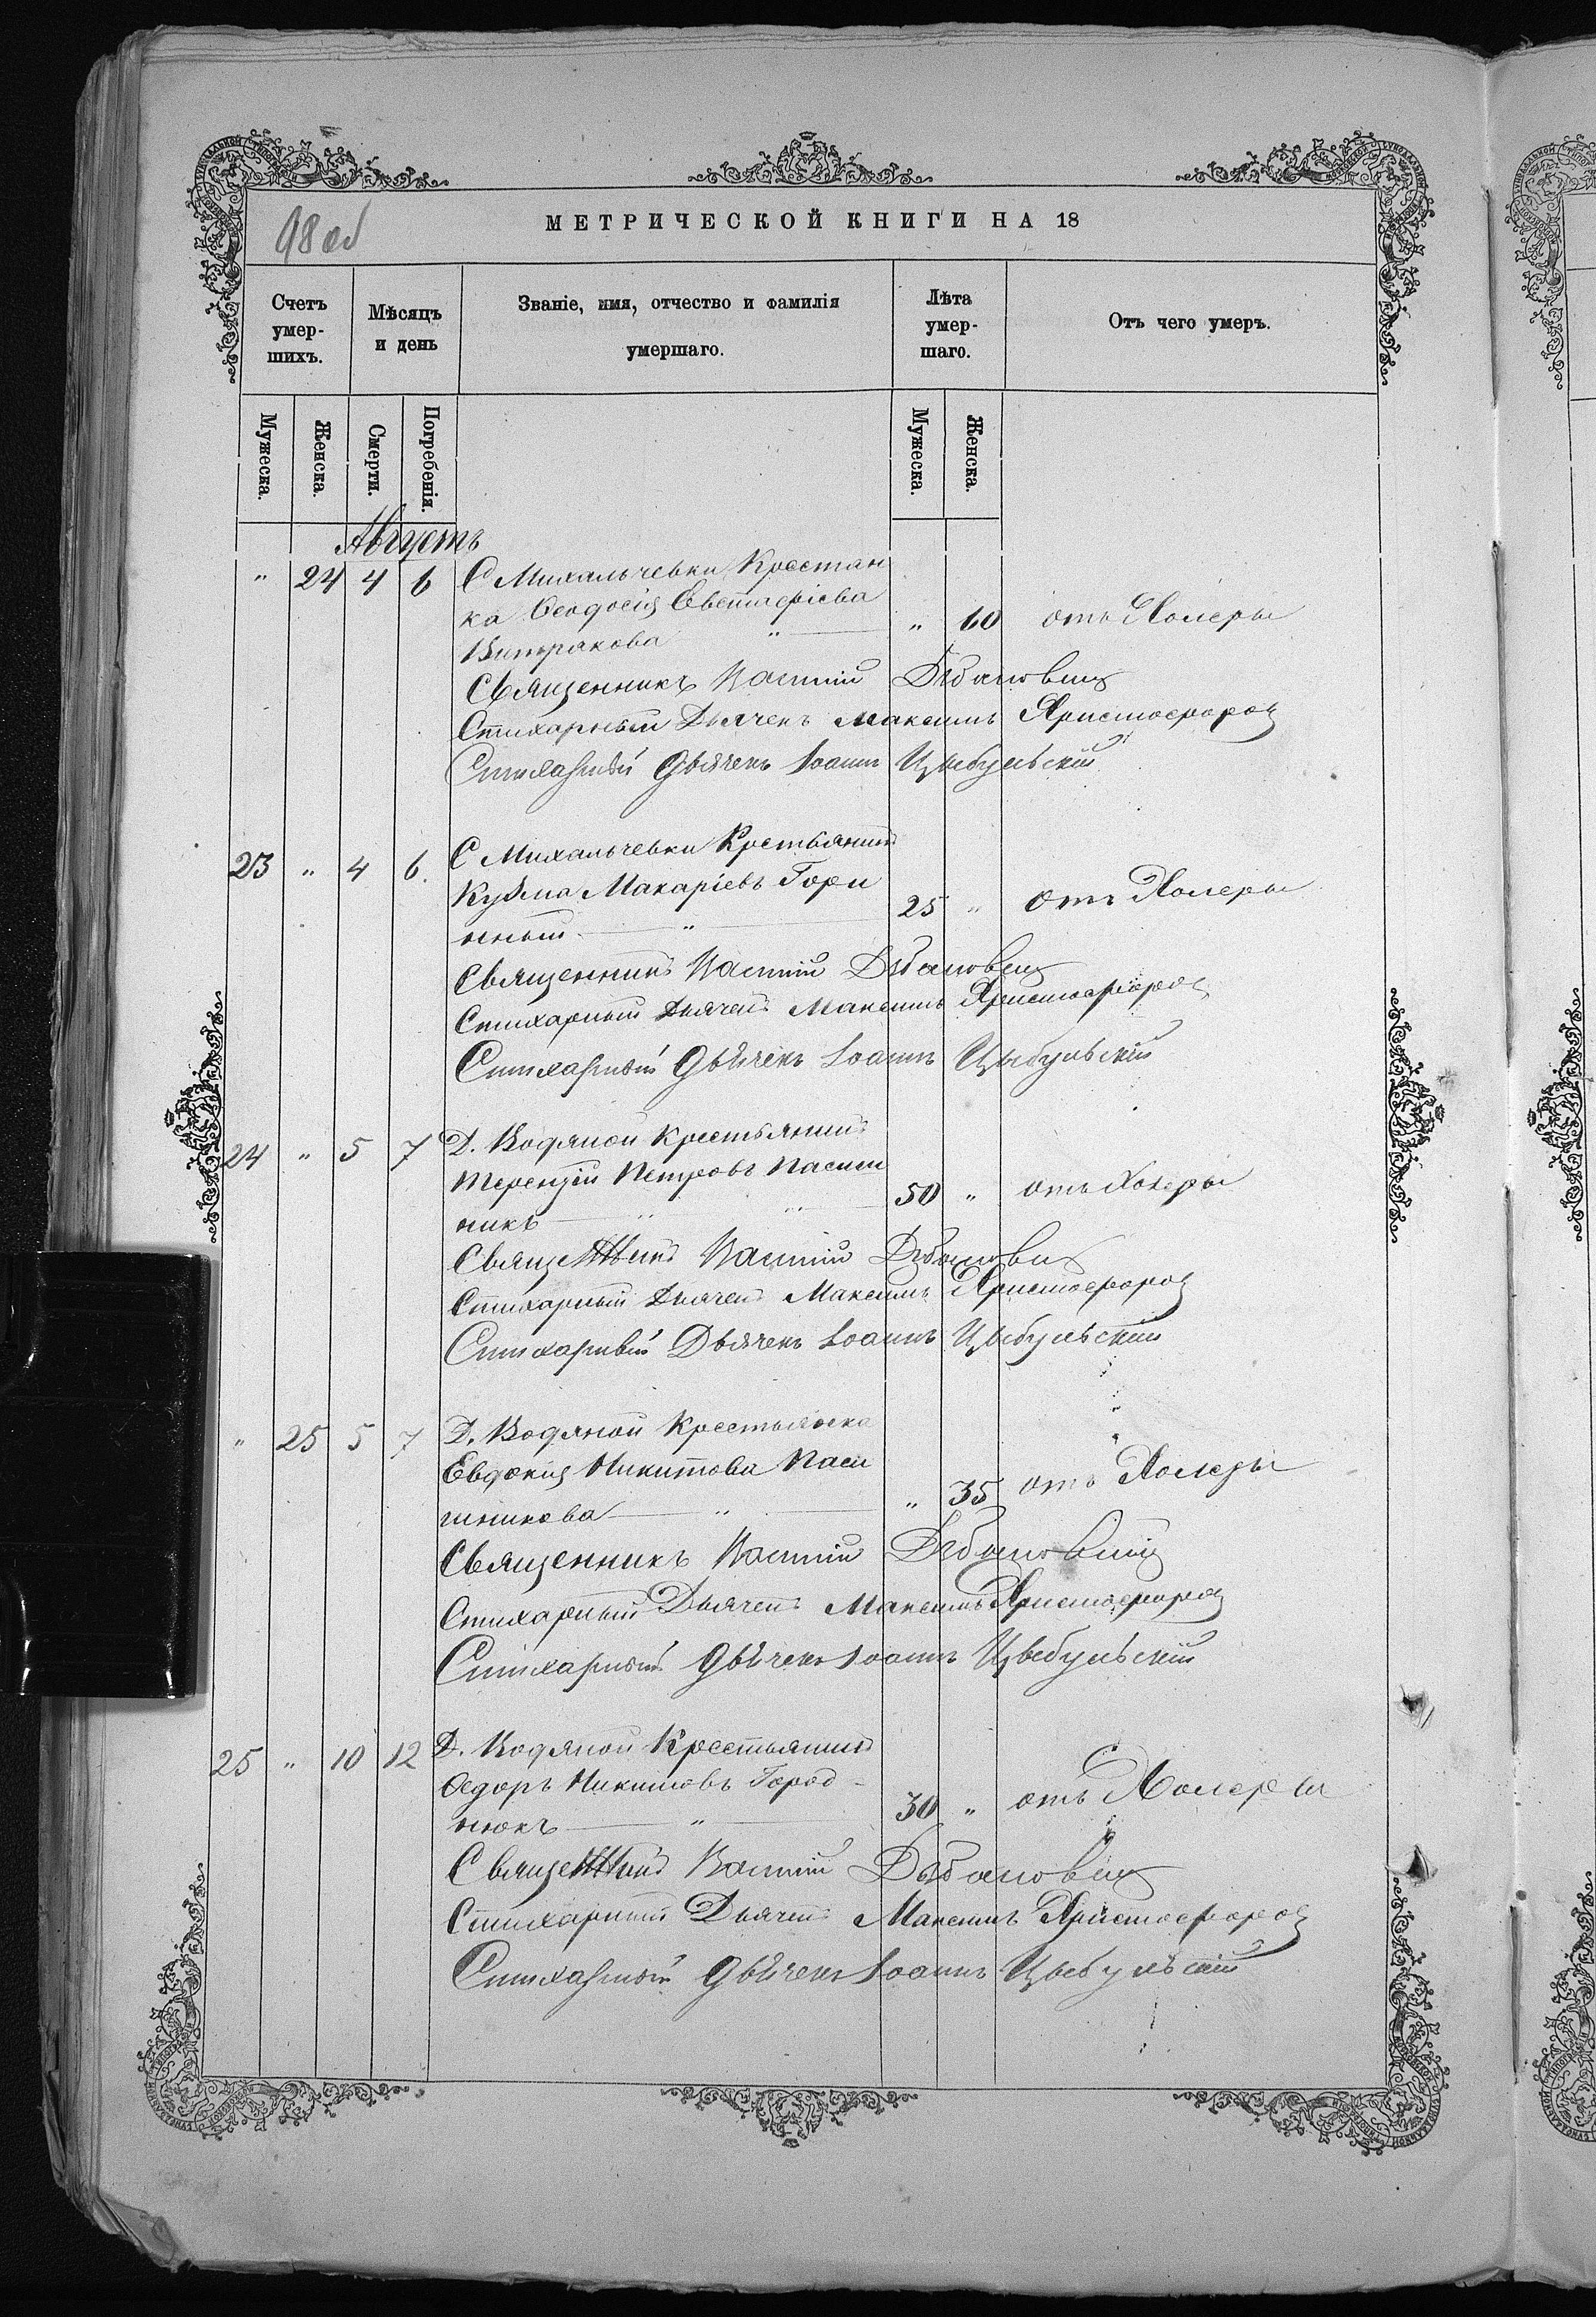 98 об
МЕТРИЧЕСКОЙ КНИГИ НА 18
Счетъ умер- шихъ.
Мѣсяцъ и день
Званіе, имя, отчество и фамилія умершаго.
Лѣта умер- шаго.
Отъ чего умеръ.
Мужеска. Женска. Смерти. Погребенія. Мужеска. Женска.
Августъ
" 24 4 6 С Михальчевки Крестян
ка Ѳеодосія Евстаѳіева " 60 отъ Холеры
Витракова "
Священникъ Василій
Стихарный Дьячекъ Максимъ Христофоров
Стихарный Дьячекъ Іоаннъ Цыбульскій
23 " 4 6. С Михальчевки Крестьянинъ
Кузма Макаріевъ Гори 25 " отъ Холеры
"
Священникъ Василій
Стихарный Дьячекъ Максимъ Христофоров
Стихарный Дьячекъ Іоаннъ Цыбульскій
24 " 5 7 Д. Водяной Крестьянинъ
Терентій Петровъ Пасѣш 50 " отъ Холеры
никъ " "
Священникъ Василій
Стихарный Дьячекъ Максимъ Христофоров
Стихарный Дьячекъ Іоаннъ Цыбульскій
" 25 5 7 Д. Водяной Крестьянка
Евдокія Никитова Паси " 35 отъ Холеры
шникова "
Священникъ Василій
Стихарный Дьячекъ Максимъ Христофоров
Стихарный Дьячекъ Іоаннъ Цыбульскій
25 " 10 12 Д. Водяной Крестьянинъ
Ѳедоръ Никитовъ Город- 30 " отъ Холеры
нюкъ "
Священникъ Василій
Стихарный Дьячекъ Максимъ Христофоров
Стихарный Дьячекъ Іоаннъ Цыбульскій